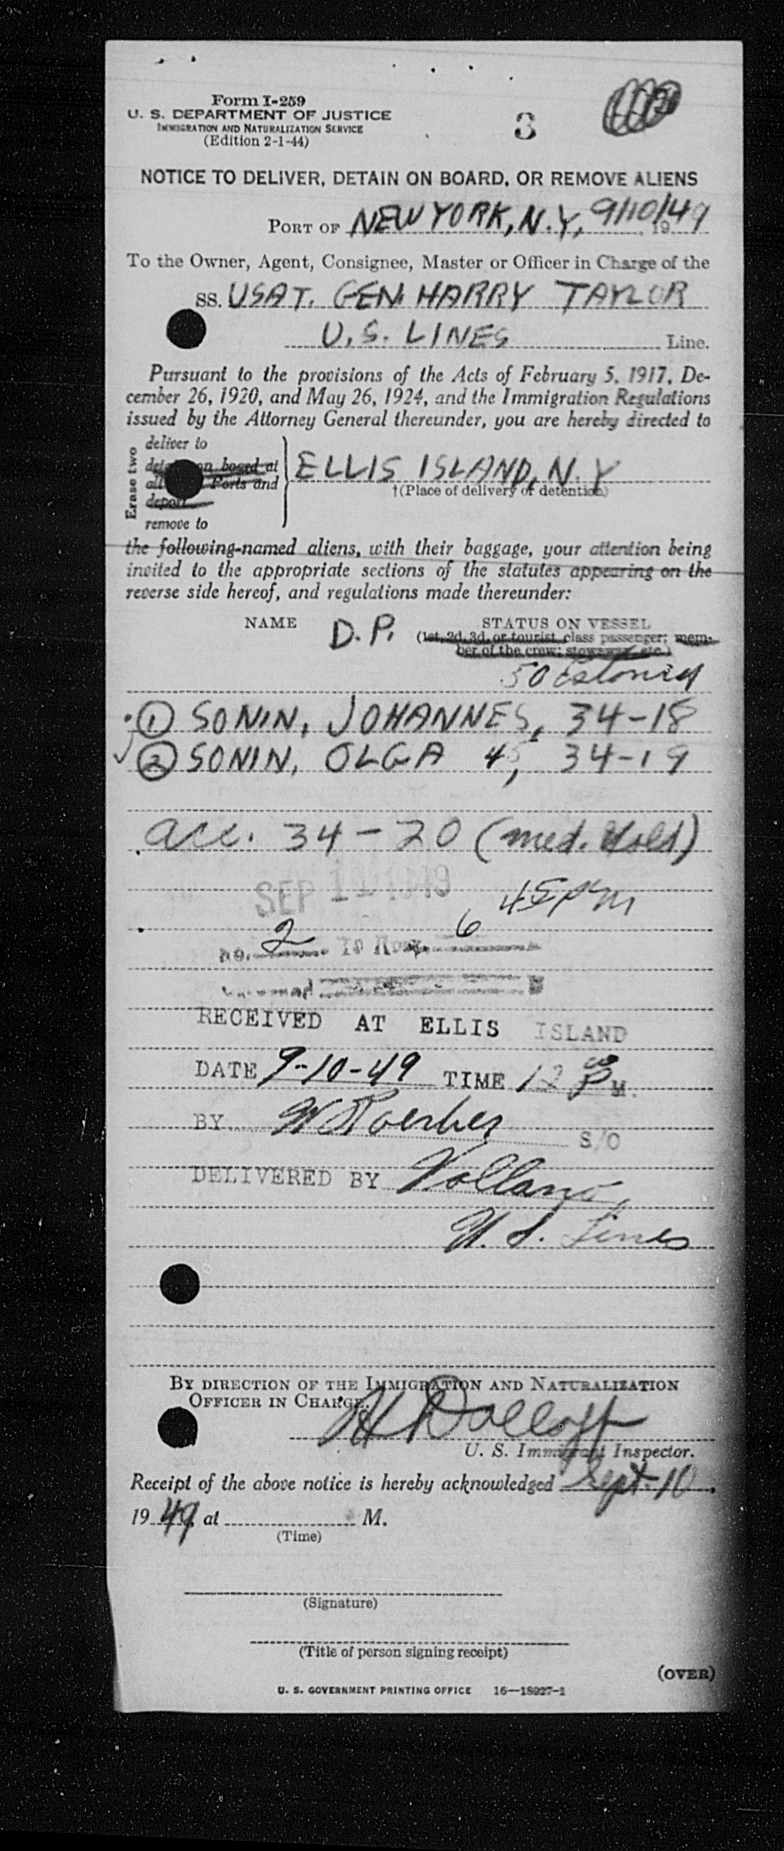 Form I-259
U. S. DEPARTMENT OF JUSTICE
IMMIGRATION AND NATURALIZATION SERVICE
(Edition 2-1-44)
3
NOTICE TO DELIVER, DETAIN ON BOARD, OR REMOVE ALIENS
PORT OF NEW YORK, N.Y., 9/10/49 19
To the Owner, Agent, Consignee, Master or Officer in Charge of the
SS. USAT. GEN. HARRY TAYLOR
U.S. LINES Line.
Pursuant to the provisions of the Acts of February 5, 1917, De-
cember 26, 1920, and May 26, 1924, and the Immigration Regulations
issued by the Attorney General thereunder, you are hereby directed to
Erase two
deliver to
on board at
all Ports and
deport
remove to
ELLIS ISLAND, N.Y
†(Place of delivery or detention)
the following-named aliens, with their baggage, your attention being
invited to the appropriate sections of the statutes appearing on the
reverse side hereof, and regulations made thereunder:
NAME D.P. STATUS ON VESSEL
(1st, 2d, 3d, or tourist class passenger; mem-
ber of the crew; stowaway etc.)
50 Estonia
① SONIN, JOHANNES, 34-18
② SONIN, OLGA 34-19
acc. 34-20 (med. Hold)
SEP 1949
45 pm
No. 2 To 6
RECEIVED AT ELLIS ISLAND
DATE 9-10-49 TIME 12 P M.
BY W Roerber S/O
DELIVERED BY Vollano,
U. S. Lines
BY DIRECTION OF THE IMMIGRATION AND NATURALIZATION
OFFICER IN CHARGE.
H Dolloff
U. S. Immigrant Inspector.
Receipt of the above notice is hereby acknowledged Sept. 10,
1949, at M.
(Time)
(Signature)
(Title of person signing receipt)
(OVER)
U. S. GOVERNMENT PRINTING OFFICE 16—18927-1